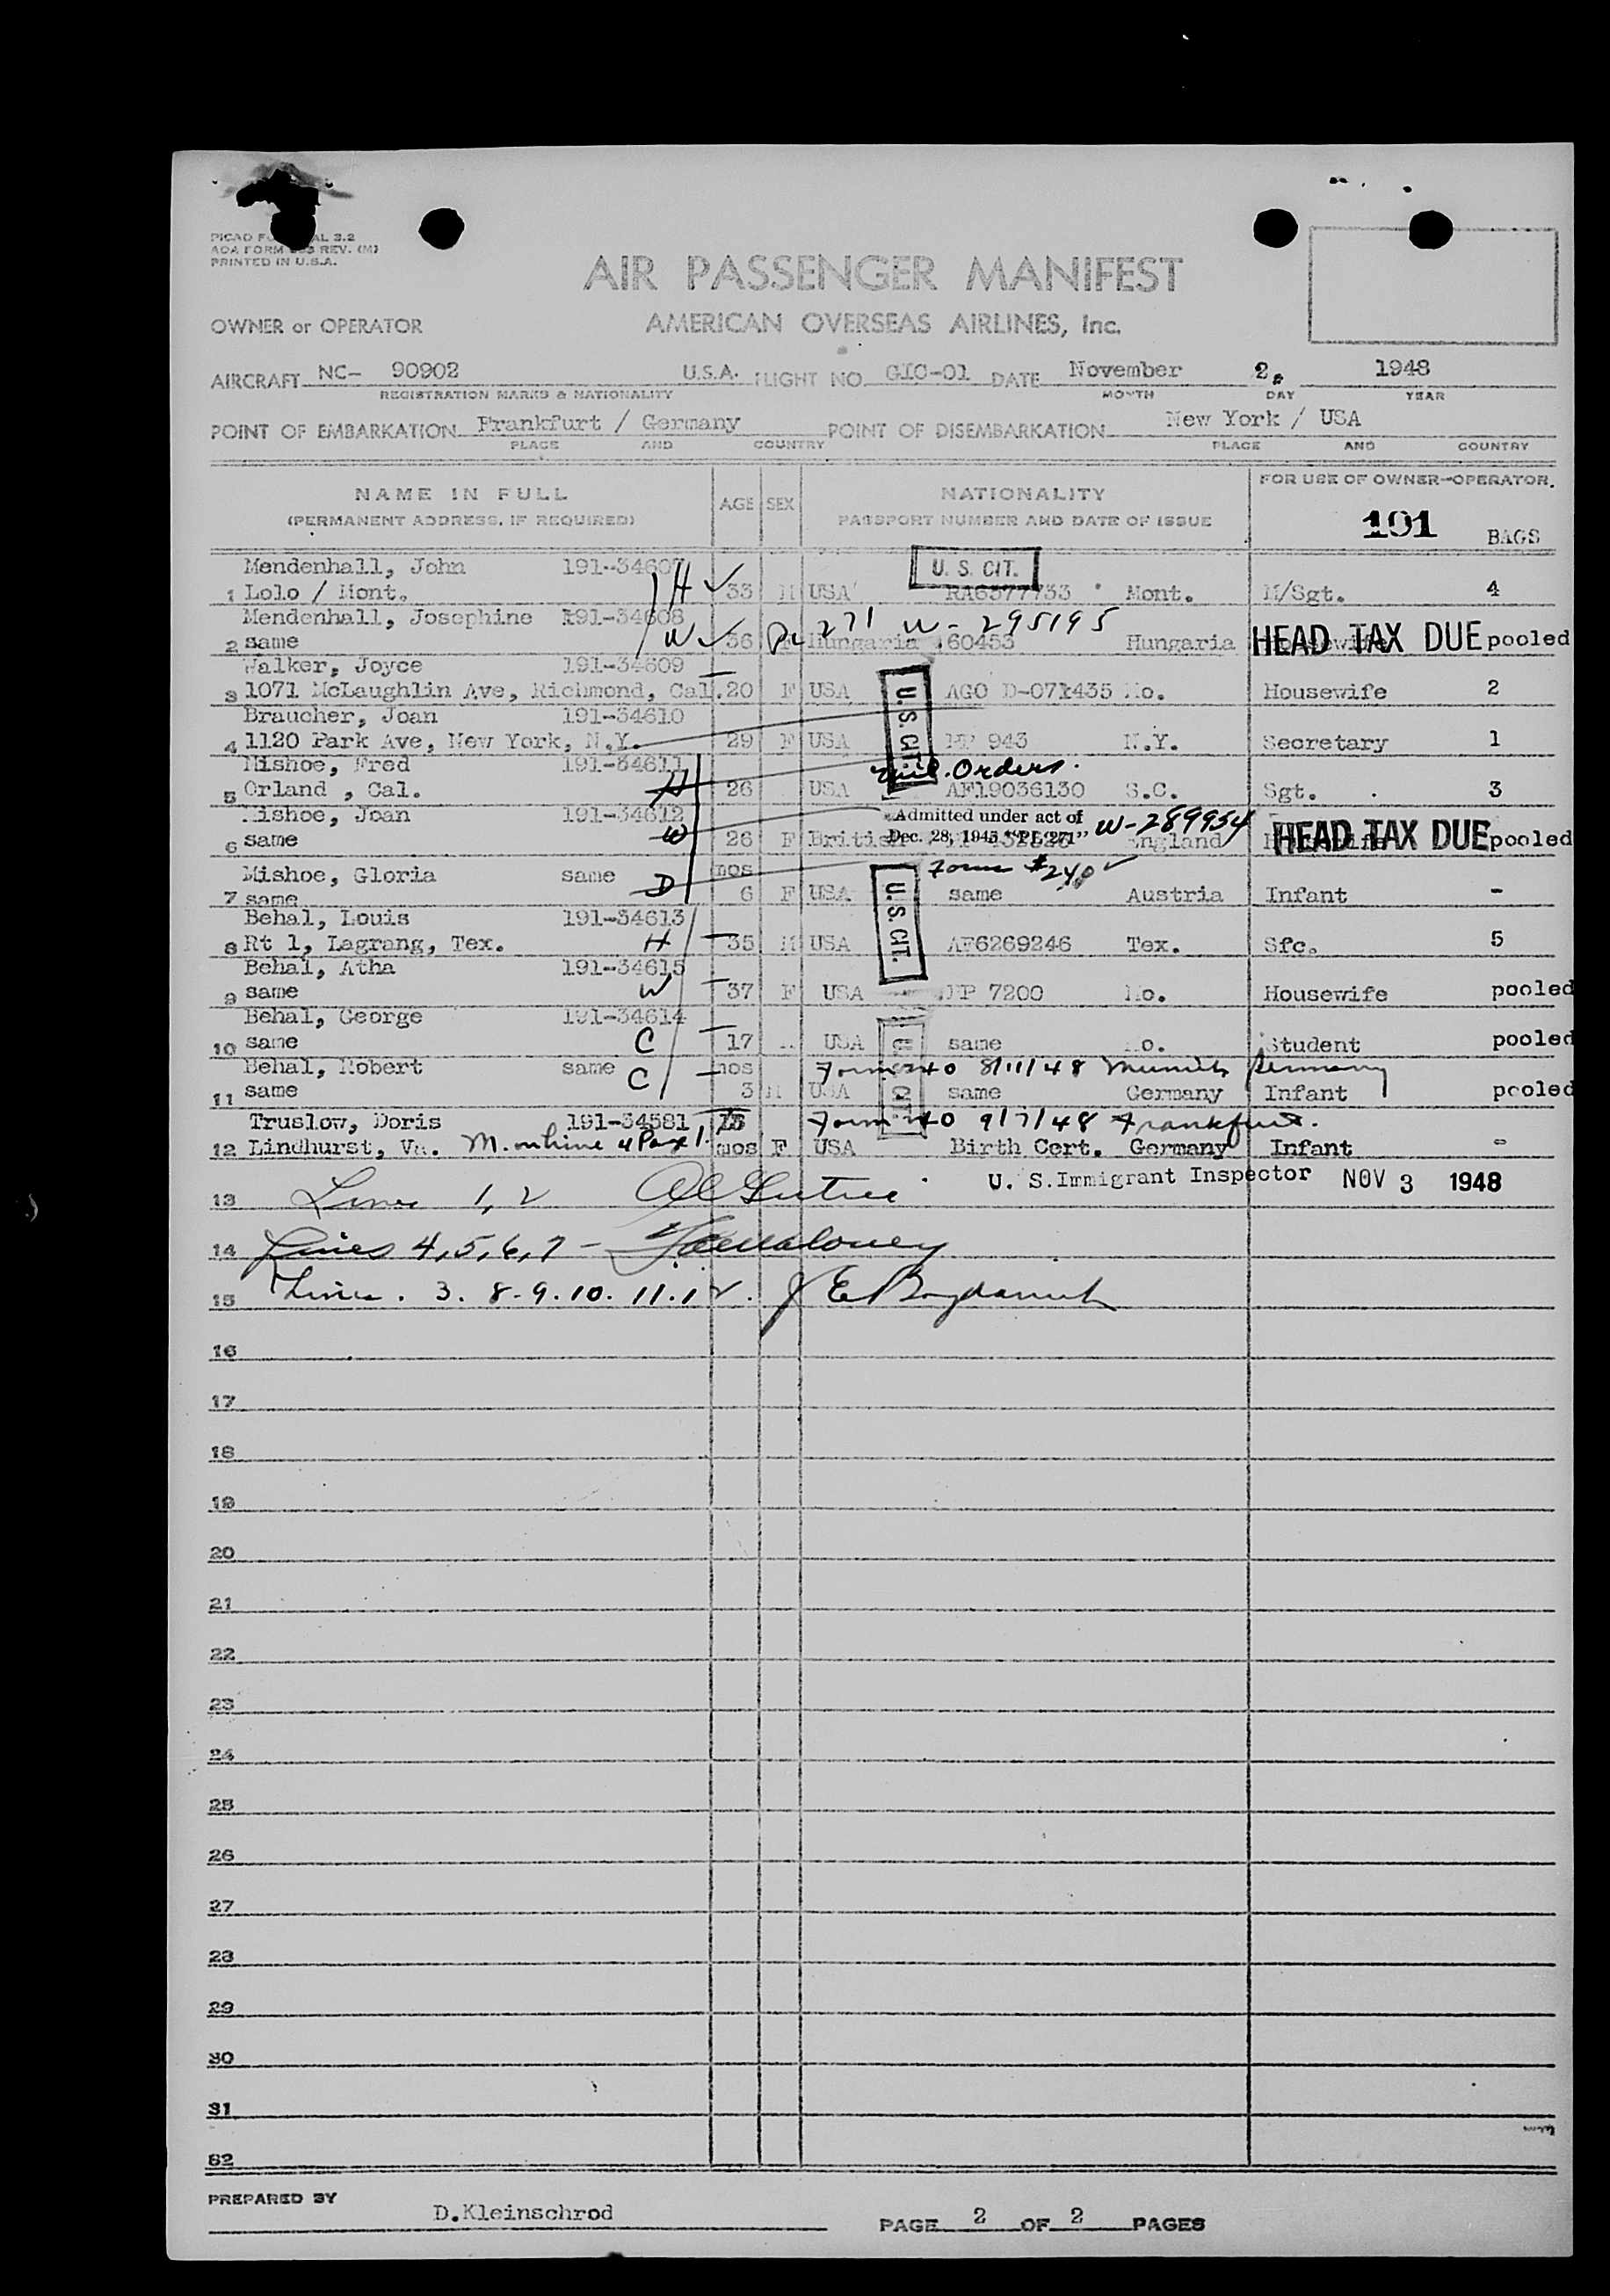 PICAO
AOA FORM REV. (M)
PRINTED IN U.S.A.
AIR PASSENGER MANIFEST
OWNER or OPERATOR AMERICAN OVERSEAS AIRLINES, Inc.
AIRCRAFT NC- 90902 U.S.A. FLIGHT NO. GIC-01 DATE November 2, 1948
REGISTRATION MARKS & NATIONALITY MONTH DAY YEAR
POINT OF EMBARKATION Frankfurt / Germany POINT OF DISEMBARKATION New York / USA
PLACE AND COUNTRY PLACE AND COUNTRY
NAME IN FULL AGE SEX NATIONALITY FOR USE OF OWNER-OPERATOR.
(PERMANENT ADDRESS, IF REQUIRED) PASSPORT NUMBER AND DATE OF ISSUE 191 BAGS
Mendenhall, John 191-34607 H U. S. CIT.
1 Lolo / Mont. 33 M USA RA6377733 Mont. M/Sgt. 4
Mendenhall, Josephine 191-34608 PL 271 W-295195
2 same W 36 F Hungaria 60453 Hungaria HEAD TAX DUE pooled
Walker, Joyce 191-34609
3 1071 McLaughlin Ave, Richmond, Cal. 20 F USA U.S. CIT. AGO D-071435 Mo. Housewife 2
Braucher, Joan 191-34610
4 1120 Park Ave, New York, N.Y. 29 F USA 943 N.Y. Secretary 1
Mishoe, Fred 191-34611 Orders.
5 Orland , Cal. H 26 USA AF19036130 S.C. Sgt. 3
Mishoe, Joan 191-34612 Admitted under act of W-289954
6 same W 26 F British Dec. 28, 1945 "PL 271" England HEAD TAX DUE pooled
Mishoe, Gloria same D mos Form #240
7 same 6 F USA same Austria Infant -
Behal, Louis 191-34613 U.S. CIT.
8 Rt 1, Lagrang, Tex. H 35 M USA AF6269246 Tex. Sfc. 5
Behal, Atha 191-34615
9 same W 37 F USA 7200 Mo. Housewife pooled
Behal, George 191-34614
10 same C 17 USA same Mo. Student pooled
Behal, Robert same C mos Form 240 8/11/48 Munich Germany
11 same 3 M USA same Germany Infant pooled
Truslow, Doris 191-34581 Form 240 9/7/48 Frankfurt.
12 Lindhurst, Va. M. on line 4 Page 1. mos F USA Birth Cert. Germany Infant -
13 Lines 1, 2 U. S. Immigrant Inspector NOV 3 1948
14 Lines 4, 5, 6, 7 -
15 Lines . 3. 8-9. 10. 11. 12.
16
17
18
19
20
21
22
23
24
25
26
27
28
29
30
31
32
PREPARED BY D.Kleinschrod PAGE 2 OF 2 PAGES